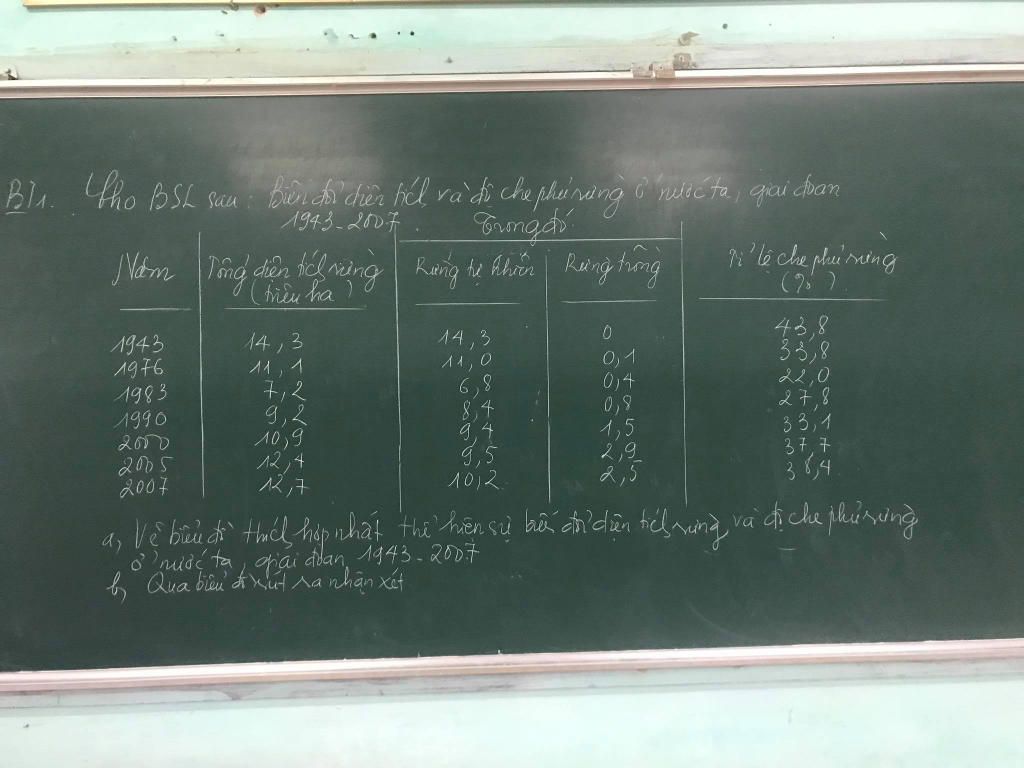 BT1. Cho BSL sau: Biến đổi diện tích và độ che phủ rừng ở nước ta, giai đoạn
1943-2007.
Trong đó
Năm Tổng diện tích rừng (triệu ha) Rừng tự nhiên Rừng trồng Tỉ lệ che phủ rừng (%)
1943 14,3 14,3 0 43,8
1976 11,1 11,0 0,1 33,8
1983 7,2 6,8 0,4 22,0
1990 9,2 8,4 0,8 27,8
2000 10,9 9,4 1,5 33,1
2005 12,4 9,5 2,9 37,7
2007 12,7 10,2 2,5 38,4
a, Vẽ biểu đồ thích hợp nhất thể hiện sự biến đổi diện tích rừng và độ che phủ rừng
ở nước ta, giai đoạn 1943-2007
b, Qua biểu đồ rút ra nhận xét